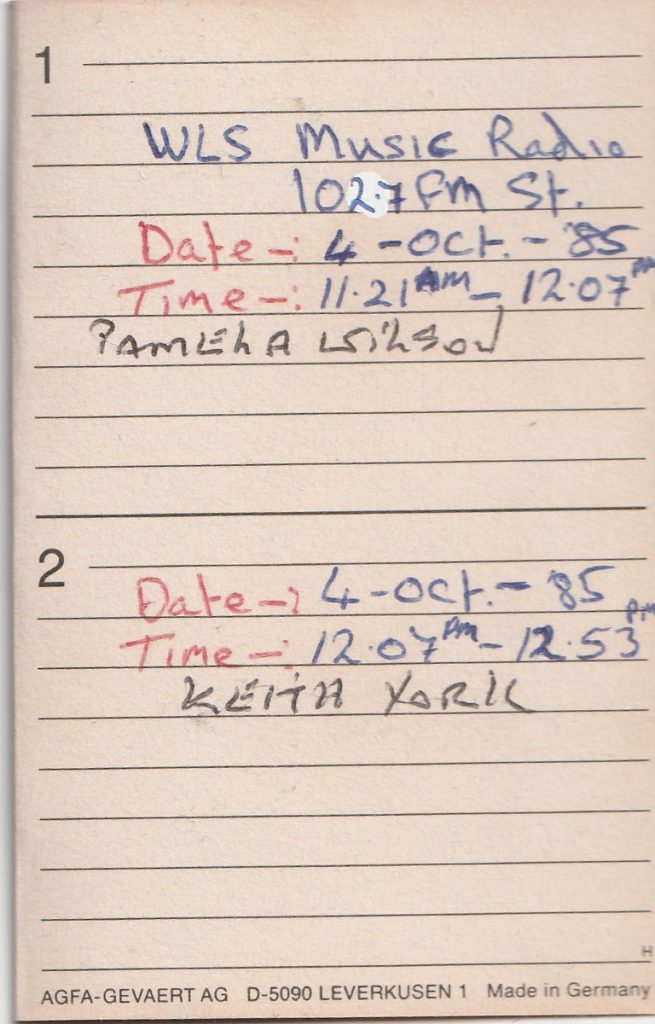 1
WLS Music Radio
102.7 FM St.
Date -: 4 - Oct. - '85
Time -: 11.21 AM - 12.07 PM
PAMELA WILSON
2
Date -: 4 - Oct. - '85
Time -: 12.07 PM - 12.53 PM
KEITH YORK
H
AGFA-GEVAERT AG D-5090 LEVERKUSEN 1 Made in Germany